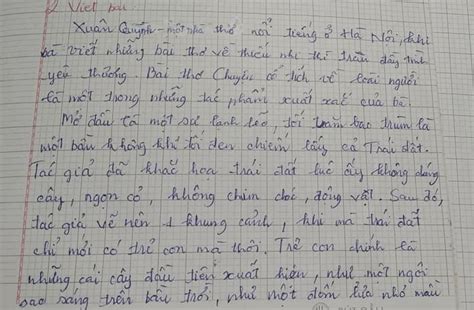 2. Viết bài
Xuân Quỳnh - một nhà thơ nổi tiếng ở Hà Nội,
bà viết những bài thơ về thiếu nhi thì tràn đầy tình
yêu thương. Bài thơ Chuyện cổ tích về loài người
là một trong những tác phẩm xuất xắc của bà.
Mở đầu là một sự lạnh lẽo, tối tăm bao trùm là
một bầu không khí tối đen chiếm lấy cả Trái đất.
Tác giả đã khắc họa trái đất lúc ấy không dáng
cây, ngọn cỏ, không chim chóc, động vật. Sau đó,
tác giả vẽ nên 1 khung cảnh, khi mà trái đất
chỉ mới có trẻ con mà thôi. Trẻ con chính là
những cái cây đầu tiên xuất hiện, như một ngôi
sao sáng trên bầu trời, như một đốm lửa nhỏ màu